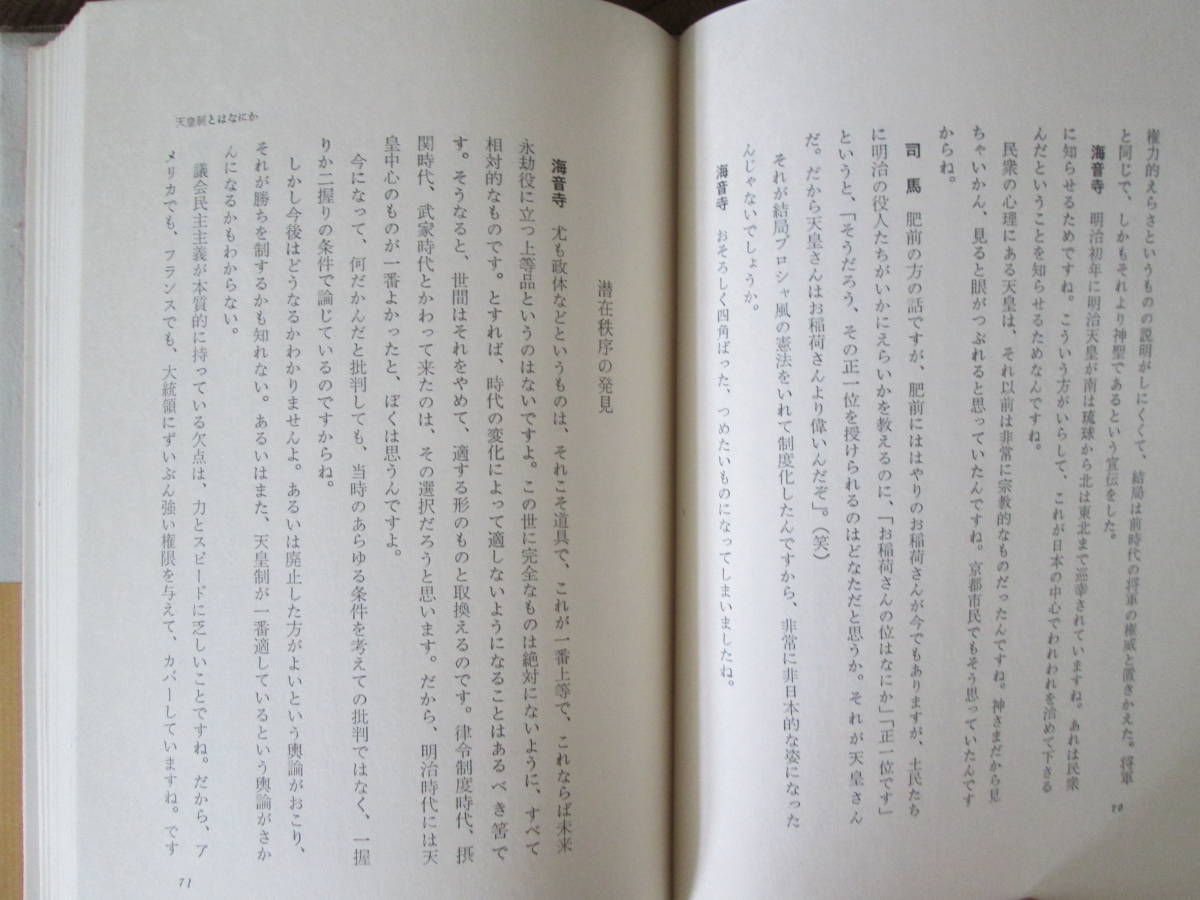 権力的えらさというものの説明がしにくくて、結局は前時代の将軍の権威と置きかえた。将軍
と同じで、しかもそれより神聖であるという宣伝をした。
海音寺　明治初年に明治天皇が南は琉球から北は東北まで巡幸されていますね。あれは民衆
に知らせるためですね。こういう方がいらして、これが日本の中心でわれわれを治めて下さる
んだということを知らせるためなんですね。
民衆の心理にある天皇は、それ以前は非常に宗教的なものだったんですね。神さまだから見
ちゃいかん、見ると眼がつぶれると思っていたんですね。京都市民でもそう思っていたんです
からね。
司　馬　肥前の方の話ですが、肥前にははやりのお稲荷さんが今でもありますが、土民たち
に明治の役人たちがいかにえらいかを教えるのに、「お稲荷さんの位はなにか」「正一位です」
というと、「そうだろう、その正一位を授けられるのはどなただと思うか。それが天皇さん
だ。だから天皇さんはお稲荷さんより偉いんだぞ」。（笑）
それが結局プロシャ風の憲法をいれて制度化したんですから、非常に非日本的な姿になった
んじゃないでしょうか。
海音寺　おそろしく四角ばった、つめたいものになってしまいましたね。
70
天皇制とはなにか
潜在秩序の発見
海音寺　尤も政体などというものは、それこそ道具で、これが一番上等で、これならば未来
永劫役に立つ上等品というのはないですよ。この世に完全なものは絶対にないように、すべて
相対的なものです。とすれば、時代の変化によって適しないようになることはあるべき筈で
す。そうなると、世間はそれをやめて、適する形のものと取換えるのです。律令制度時代、摂
関時代、武家時代とかわって来たのは、その選択だろうと思います。だから、明治時代には天
皇中心のものが一番よかったと、ぼくは思うんですよ。
今になって、何だかんだと批判しても、当時のあらゆる条件を考えての批判ではなく、一握
りか二握りの条件で論じているのですからね。
しかし今後はどうなるかわかりませんよ。あるいは廃止した方がよいという輿論がおこり、
それが勝ちを制するかも知れない。あるいはまた、天皇制が一番適しているという輿論がさか
んになるかもわからない。
議会民主主義が本質的に持っている欠点は、力とスピードに乏しいことですね。だから、ア
メリカでも、フランスでも、大統領にずいぶん強い権限を与えて、カバーしていますね。です
71